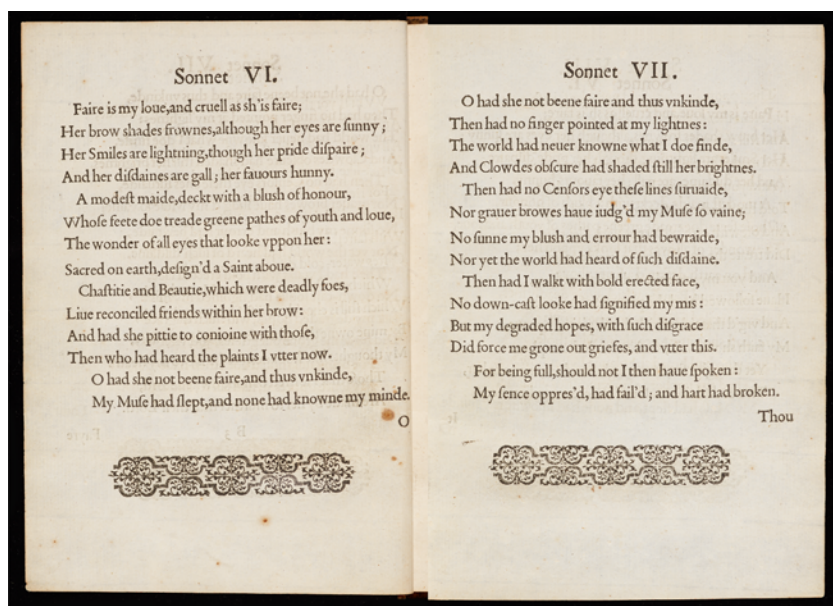 Sonnet VI.
Faire is my loue,and cruell as sh'is faire;
Her brow shades frownes,although her eyes are ſunny;
Her Smiles are lightning,though her pride diſpaire;
And her diſdaines are gall; her fauours hunny.
A modeſt maide,deckt with a blush of honour,
VVhoſe feete doe treade greene pathes of youth and loue,
The wonder of all eyes that looke vppon her:
Sacred on earth,deſign'd a Saint aboue.
Chaſtitie and Beautie,which were deadly foes,
Liue reconciled friends within her brow:
And had she pittie to conioine with thoſe,
Then who had heard the plaints I vtter now.
O had she not beene faire,and thus vnkinde,
My Muſe had ſlept,and none had knowne my minde.
O
Sonnet VII.
O had she not beene faire and thus vnkinde,
Then had no finger pointed at my lightnes:
The world had neuer knowne what I doe finde,
And Clowdes obſcure had shaded ſtill her brightnes.
Then had no Cenſors eye theſe lines ſuruaide,
Nor grauer browes haue iudg'd my Muſe ſo vaine;
No ſunne my blush and errour had bewraide,
Nor yet the world had heard of ſuch diſdaine.
Then had I walkt with bold erected face,
No down-caſt looke had ſignified my mis:
But my degraded hopes, with ſuch diſgrace
Did force me grone out griefes, and vtter this.
For being full,should not I then haue ſpoken:
My ſence oppres'd, had fail'd; and hart had broken.
Thou